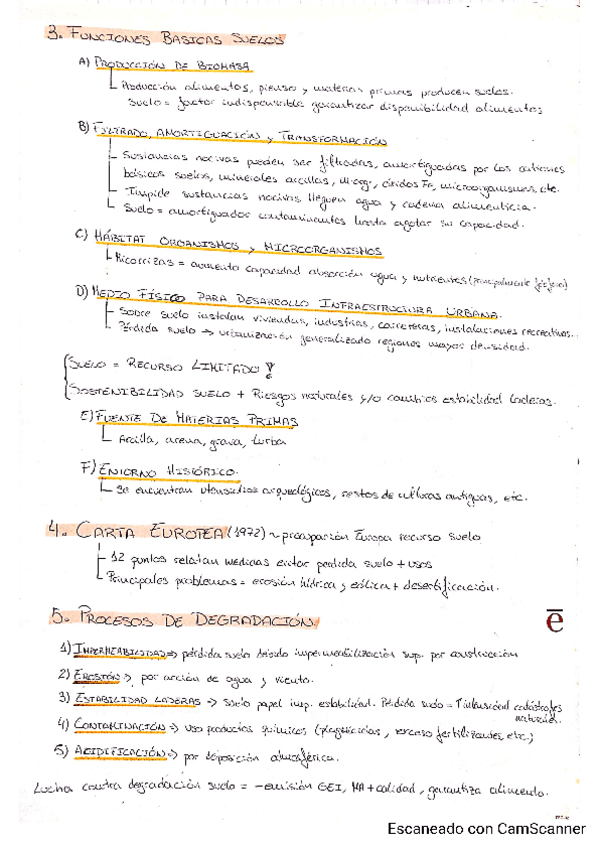 3. FUNCIONES BASICAS SUELOS
A) PRODUCCIÓN DE BIOMASA
Producción alimentos, piensos y materias primas producen suelos.
Suelo = factor indispensable garantizar disponibilidad alimentos
B) FILTRADO, AMORTIGUACIÓN y TRANSFORMACIÓN
Sustancias nocivas pueden ser filtradas, amortiguadas por los
básicos suelos, minerales arcillas, m.org, óxidos Fe, microorganismos, etc.
Impide sustancias nocivas lleguen agua y cadena alimenticia.
Suelo = amortiguador contaminantes hasta agotar su capacidad.
C) HÁBITAT ORGANISMOS y MICROORGANISMOS
Micorrizas = aumento capacidad absorción agua y nutrientes (principalmente fósforo)
D) MEDIO FÍSICO PARA DESARROLLO INFRAESTRUCTURA URBANA.
Sobre suelo instalan viviendas, industrias, carreteras, instalaciones recreativas.
Pérdida suelo → urbanización generalizado regiones mayor densidad.
SUELO = RECURSO LIMITADO !
SOSTENIBILIDAD SUELO + Riesgos naturales y/o cambios estabilidad laderas.
E) FUENTE DE MATERIAS PRIMAS
Arcilla, arena, grava, turba
F) ENTORNO HISTÓRICO.
Se encuentran utensilios arqueológicos, restos de culturas antiguas, etc.
4. CARTA EUROPEA (1972) ~ preocupación Europa recurso suelo
12 puntos relatan medidas evitar perdida suelo + usos
Principales problemas = erosión hídrica y eólica + desertificación.
5. PROCESOS DE DEGRADACIÓN
1) IMPERMEABILIDAD => pérdida suelo debido impermeabilización sup. por construcción
2) EROSIÓN => por acción de agua y viento.
3) ESTABILIDAD LADERAS -> suelo papel imp. estabilidad. Pérdida suelo = ↑intensidad catástrofes
naturales.
4) CONTAMINACIÓN -> uso productos químicos (plaguicidas, exceso fertilizantes, etc.)
5) ACIDIFICACIÓN -> por deposición atmosférica.
Lucha contra degradación suelo = -emisión GEI, MA + calidad, garantiza alimento.
Escaneado con CamScanner